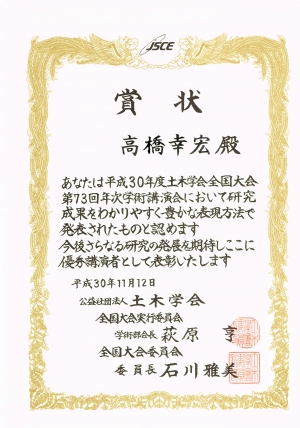 JSCE
賞状
高橋幸宏殿
あなたは平成30年度土木学会全国大会
第73回年次学術講演会において研究
成果をわかりやすく豊かな表現方法で
発表されたものと認めます
今後さらなる研究の発展を期待しここに
優秀講演者として表彰いたします
平成30年11月12日
公益社団法人 土木学会
全国大会実行委員会
学術部会長 萩原 亨
全国大会委員会
委員長 石川雅美